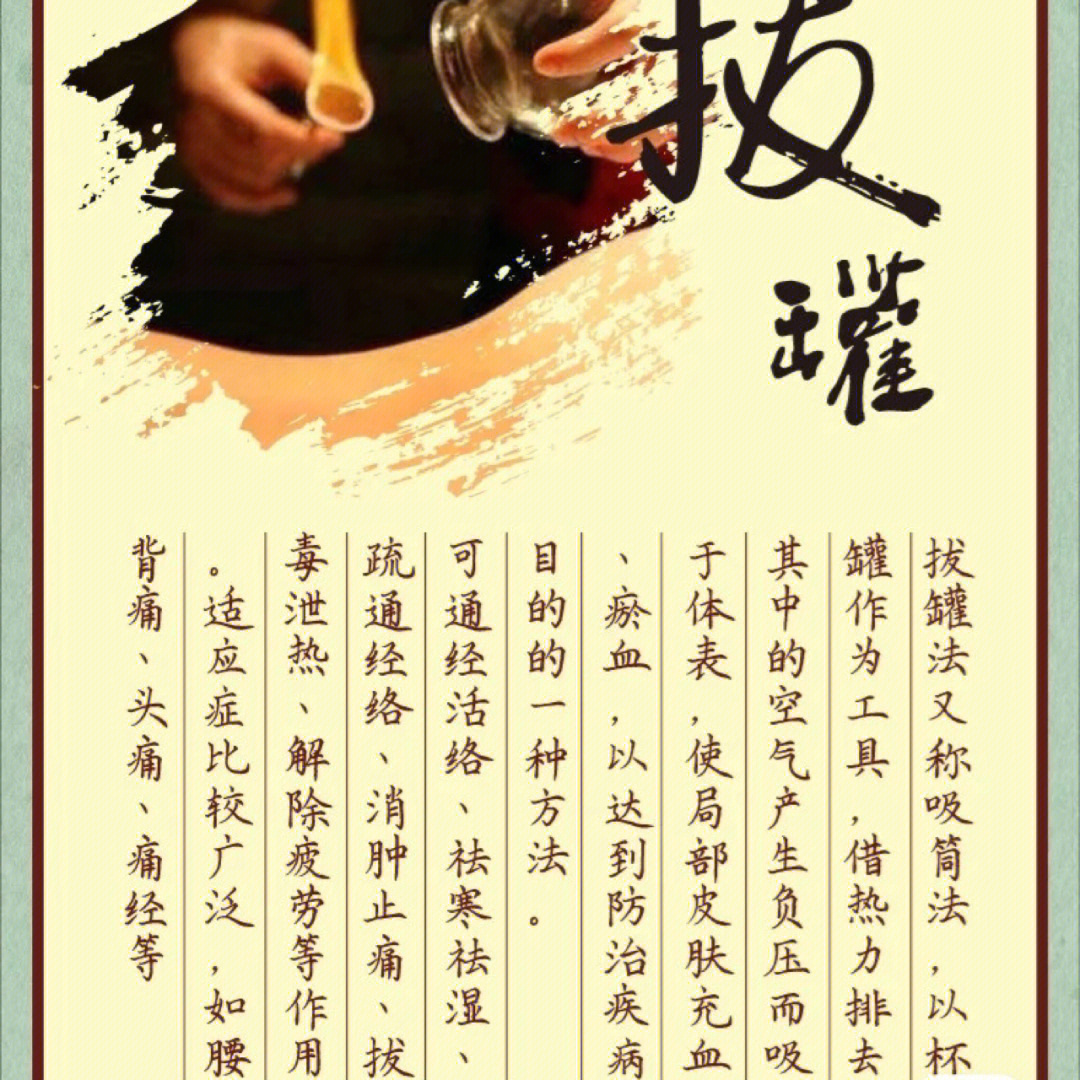 拔
罐
拔罐法又称吸筒法,以杯
罐作为工具,借热力排去
其中的空气产生负压而吸
于体表,使局部皮肤充血
、瘀血,以达到防治疾病
目的的一种方法。
可通经活络、祛寒祛湿、
疏通经络、消肿止痛、拔
毒泄热、解除疲劳等作用
。适应症比较广泛,如腰
背痛、头痛、痛经等